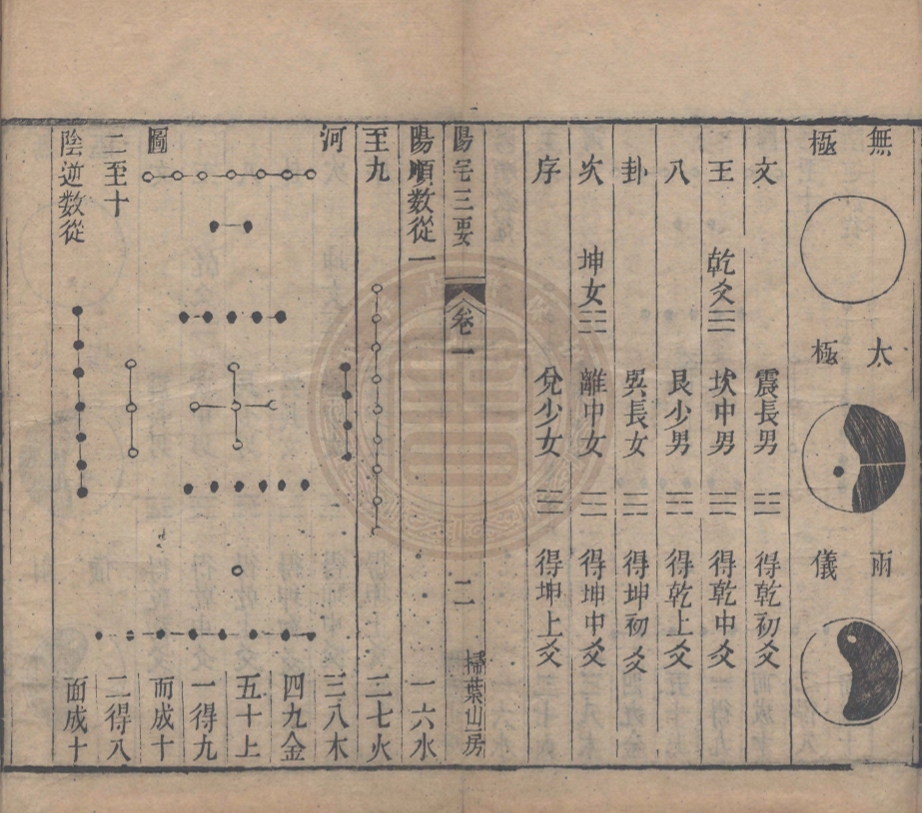 無極
太極
兩儀
文 震長男 ☳ 得乾初爻
王 乾爻☰ 坎中男 ☵ 得乾中爻
八 艮少男 ☶ 得乾上爻
卦 巽長女 ☴ 得坤初爻
次 坤女☷ 離中女 ☲ 得坤中爻
序 兌少女 ☱ 得坤上爻
陽宅三要 卷一 二 掃葉山房
陽順数從一 一六水
至九 二七火
河 三八木
四九金
五十上
一得九
圖 而成十
二至十 二得八
陰逆数從 面成十